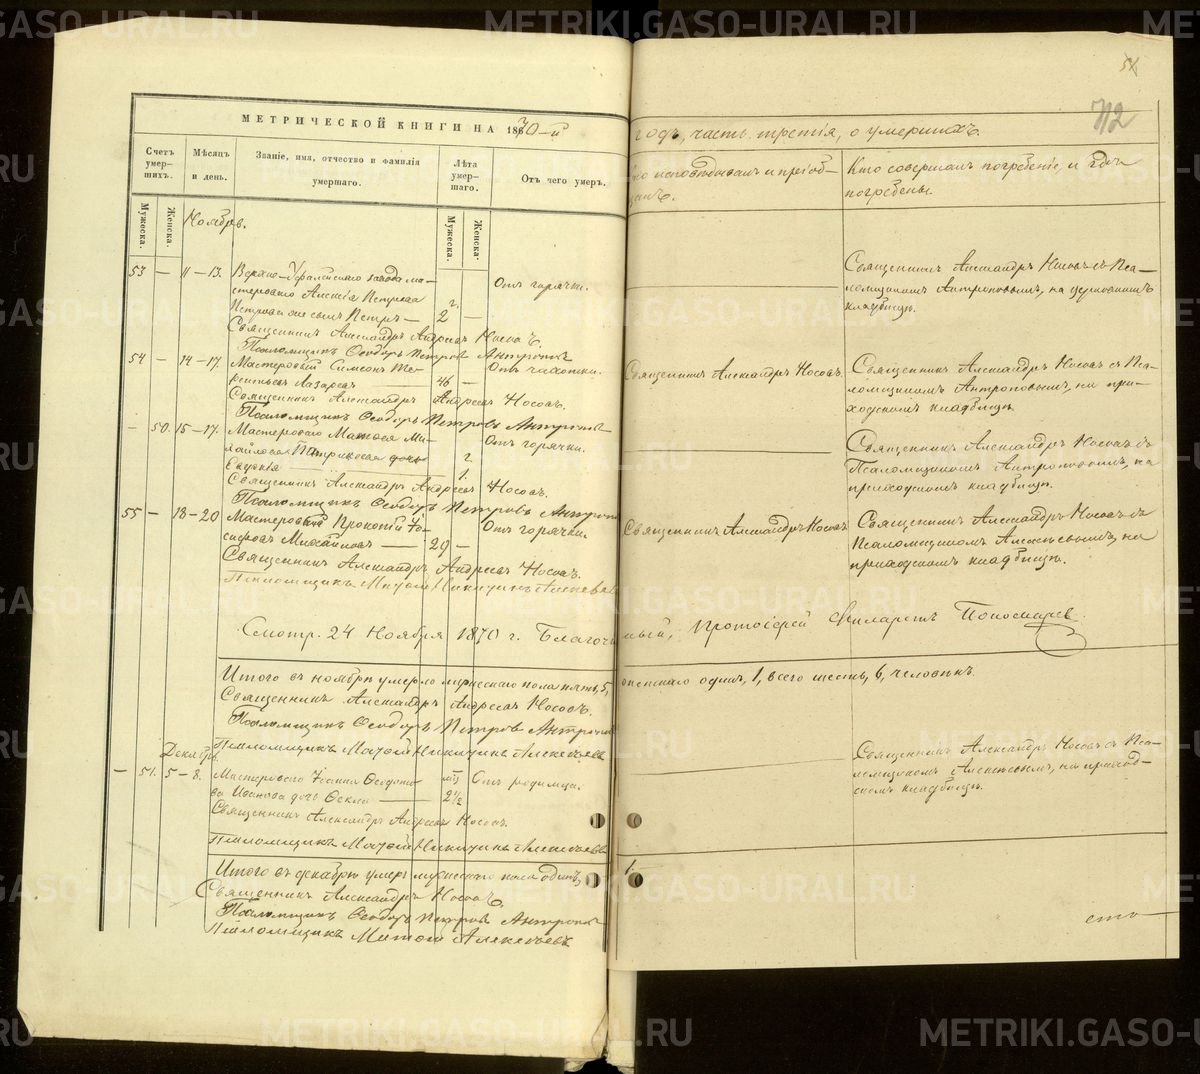 METRIKI.GASO-URAL.RU
54
112
МЕТРИЧЕСКОЙ КНИГИ НА 1870-й
годъ, часть третія, о умершихъ.
Счетъ умер-
шихъ.
Мѣсяцъ
и день.
Званіе, имя, отчество и фамилія
умершаго.
Лѣта
умер-
шаго.
Отъ чего умеръ.
исповѣдывалъ и пріоб-
щалъ.
Кто совершалъ погребеніе, и гдѣ
погребены.
Мужеска.
Женска.
Мужеска.
Женска.
Ноябрь.
53 — 11 – 13. Верхно-Уфалейскаго завода ма-
стероваго Алексѣя Петрова
сынъ Петръ — 2 г. — Отъ горячки.
Священникъ Александръ Носовъ съ Пса-
ломщикомъ Антроповымъ, на церковномъ
кладбищѣ.
Священникъ Александръ Андреевъ Носовъ.
Псаломщикъ Ѳеодоръ Петровъ Антроповъ
54 — 14 – 17. Мастеровой Симеонъ Те-
рентьевъ Лазаревъ — 46 — Отъ чахотки.
Священникъ Александръ Носовъ.
Священникъ Александръ Носовъ съ Пса-
ломщикомъ Антроповымъ, на при-
ходскомъ кладбищѣ.
Священникъ Александръ Андреевъ Носовъ.
Псаломщикъ Ѳеодоръ Петровъ Антроповъ
— 50. 15 – 17. Мастероваго Матвея Ми-
хайлова дочь
Евдокія 1. Отъ горячки.
Священникъ Александръ Носовъ съ
Псаломщикомъ Антроповымъ, на
приходскомъ кладбищѣ.
Священникъ Александръ Андреевъ Носовъ.
Псаломщикъ Ѳеодоръ Петровъ Антроповъ
55 — 18 – 20 Мастеровый Прокопій Іо-
сифовъ Михайловъ — 29 — Отъ горячки.
Священникъ Александръ Носовъ
Священникъ Александръ Носовъ съ
Псаломщикомъ Алексѣевымъ, на
приходскомъ кладбищѣ.
Священникъ Александръ Андреевъ Носовъ.
Псаломщикъ Матѳій Никитинъ Алексѣевъ
Смотр. 24 Ноября 1870 г. Благочинный, Протоіерей Филаретъ Пономаревъ
Итого въ ноябрѣ умерло мужескаго пола пять, 5, женскаго одинъ, 1, всего шесть, 6, человѣкъ.
Священникъ Александръ Андреевъ Носовъ.
Псаломщикъ Ѳеодоръ Петровъ Антроповъ
Псаломщикъ Матѳій Никитинъ Алексѣевъ
Декабрь.
— 51. 5 – 8. Мастероваго Іоанна
Иванова дочь Ѳекла — 2 ½ Отъ родимца.
Священникъ Александръ Носовъ съ Пса-
ломщикомъ Алексѣевымъ, на приход-
скомъ кладбищѣ.
Священникъ Александръ Андреевъ Носовъ.
Псаломщикъ Матѳій Никитинъ Алексѣевъ
Итого въ декабрѣ умеръ мужескаго пола одинъ, 1.
Священникъ Александръ Носовъ.
Псаломщикъ Ѳеодоръ Петровъ Антроповъ
Псаломщикъ Матѳій Алексѣевъ
сто